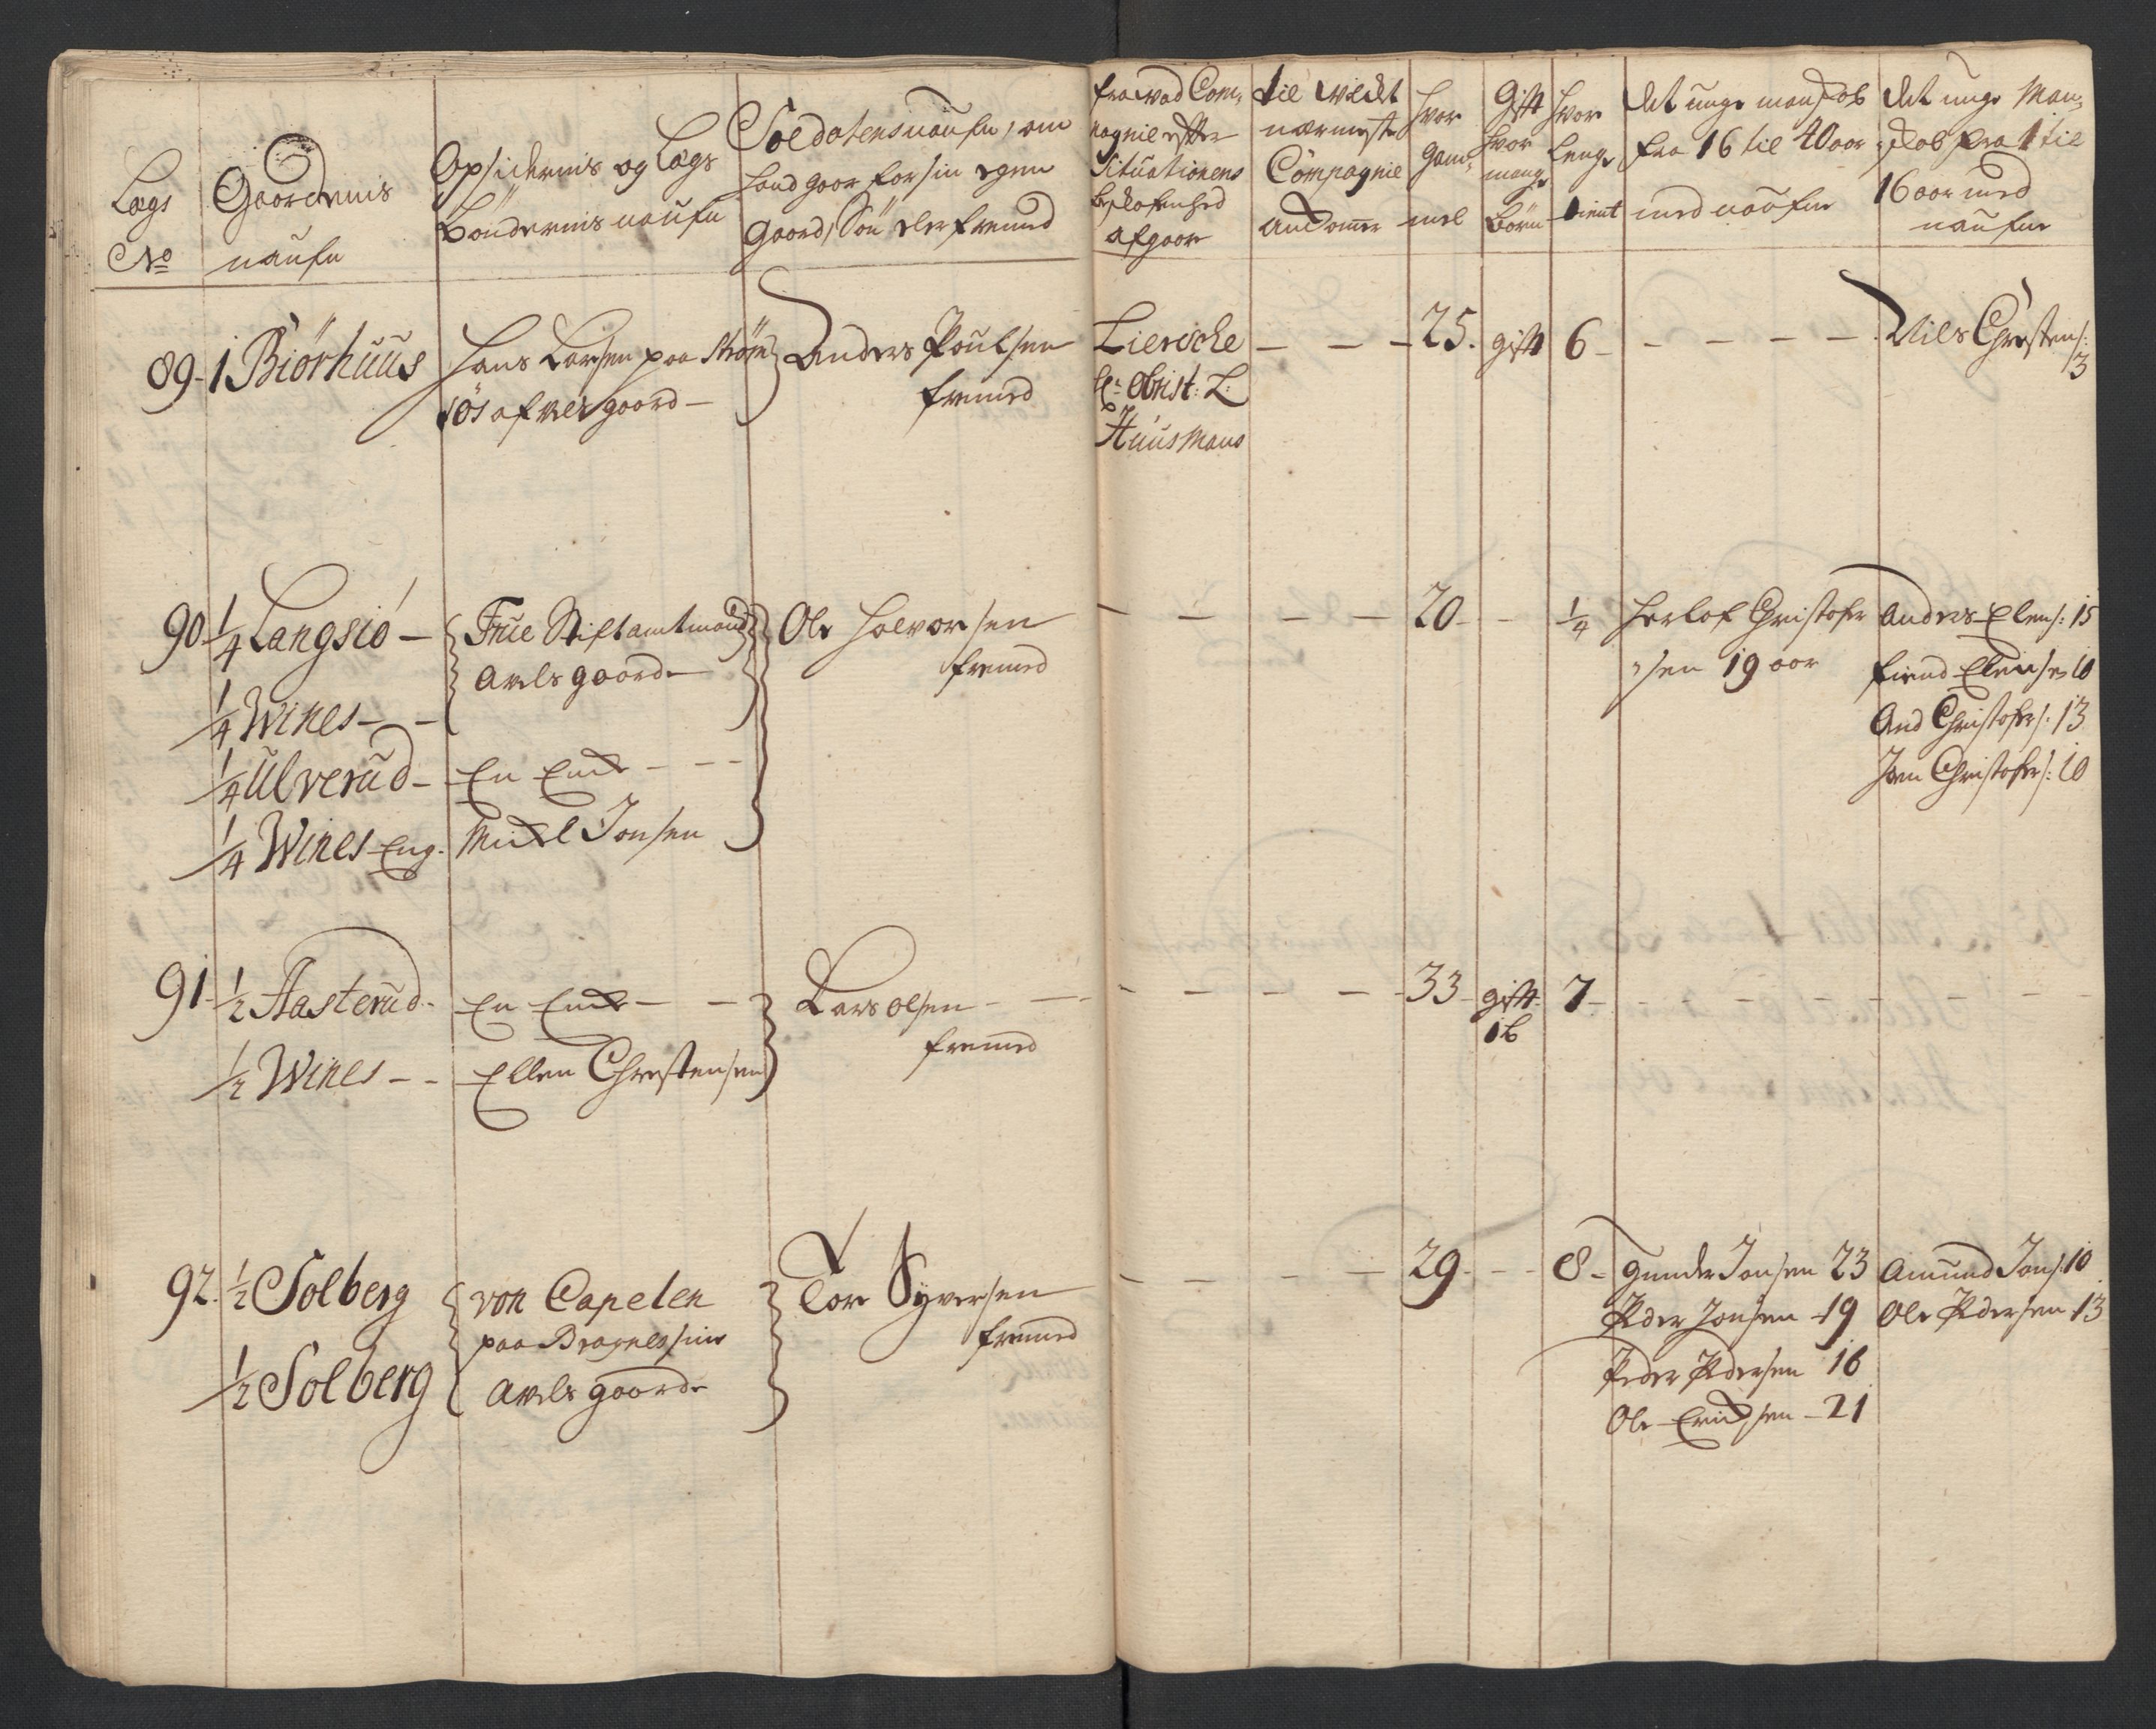 Lægs
No
Gaardernis
naufn
Opsidernis og Lægs
Böndernis naufn
Soldatens naufn, om
hand gaar for sin egen
gaard, Sön eller fremed
fra wad Com,
pagnie efter
Situationens
beskafenhed
afgaar
til wildet
nærmeste
Compagnie
ankomer
hvor
gam,
mel
Gift
hvor
mange
börn
hvor
lenge
tient
det unge mandskab
fra 16 til 40 aar
med naufne
det unge Man,
skab fra 1 til
16 aar med
naufne
89 - 1 Biörhuus
Hans Larsen paa Ström
söe afvels gaard -
Anders Poulsen
fremed
Liersche
H: Obrist: L:
Huusmans
- - - 25. gift 6 - - - - -
Nils Christens:
13
90 - 1/4 Langsiö -
1/4 Wines - -
1/4 Ulverud -
1/4 Wines Eng.
Frue Stiftamtmand
Avels gaard -
En Enke - - -
Mickel Jonsen
Ole Halvorsen
fremed
- - - - 20 - - 1/4
Herlof Christofer
sen 19 aar
Anders Elens: 15
Fiend Elensen 10
And Christofers: 13
Jam Christofers: 10
91 - 1/2 Haasterud -
1/2 Wines - -
En Enke - -
Ellen Christensen
Lars Olsen - -
fremed
- - - - 33 - gift 7 - - - - - - -
1 b
92. 1/2 Solberg
1/2 Solberg
von Capelen
paa Bragnes sine
Avels gaarde
Tor Syversen
fremed
- - - - 29 - - - 8 -
Gunder Jonsen 23
Peder Jonsen - 19
Peder Pedersen 16
Ole Ericksen - 21
Amund Jons: 10
Ole Pedersen 13